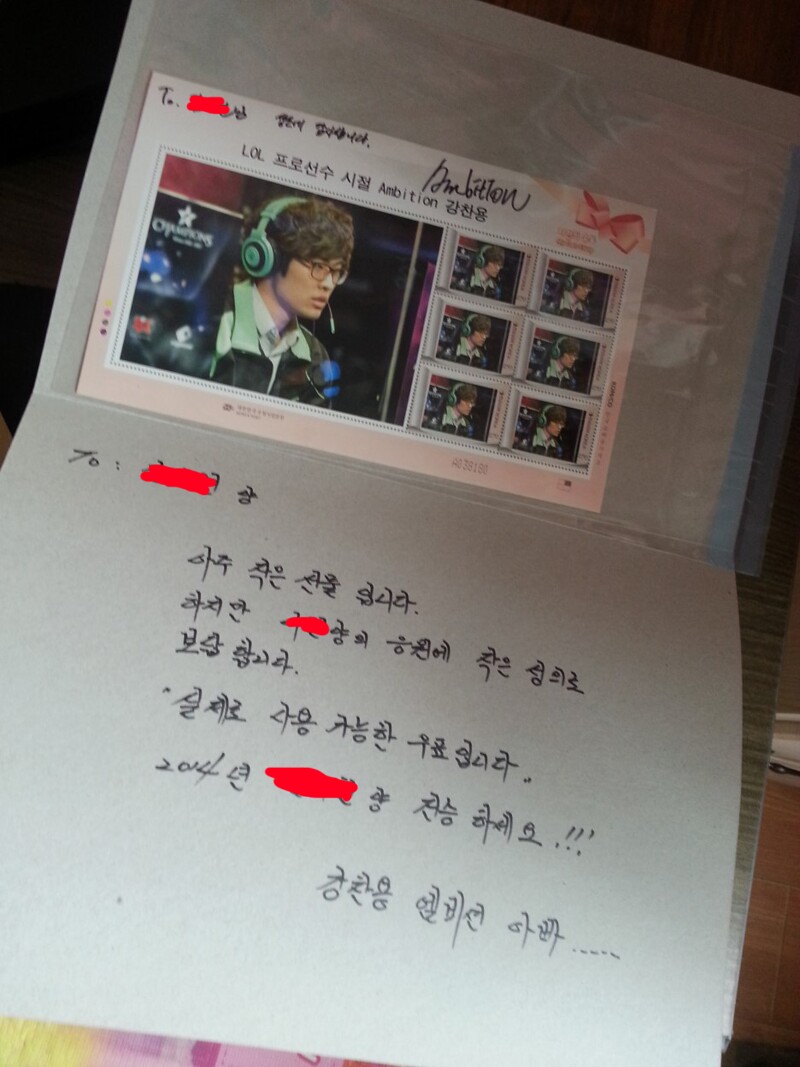 To. 님
LOL 프로선수 시절 Ambition 강찬용
Ambition
CHAMPIONS
A038180
To: 양
아주 작은 선물 입니다.
하지만 양의 응원에 작은 성의로
보답 합니다.
"실제로 사용 가능한 우표입니다"
2014년 양 전승 하세요!!!
강찬용 엠비션 아빠.....